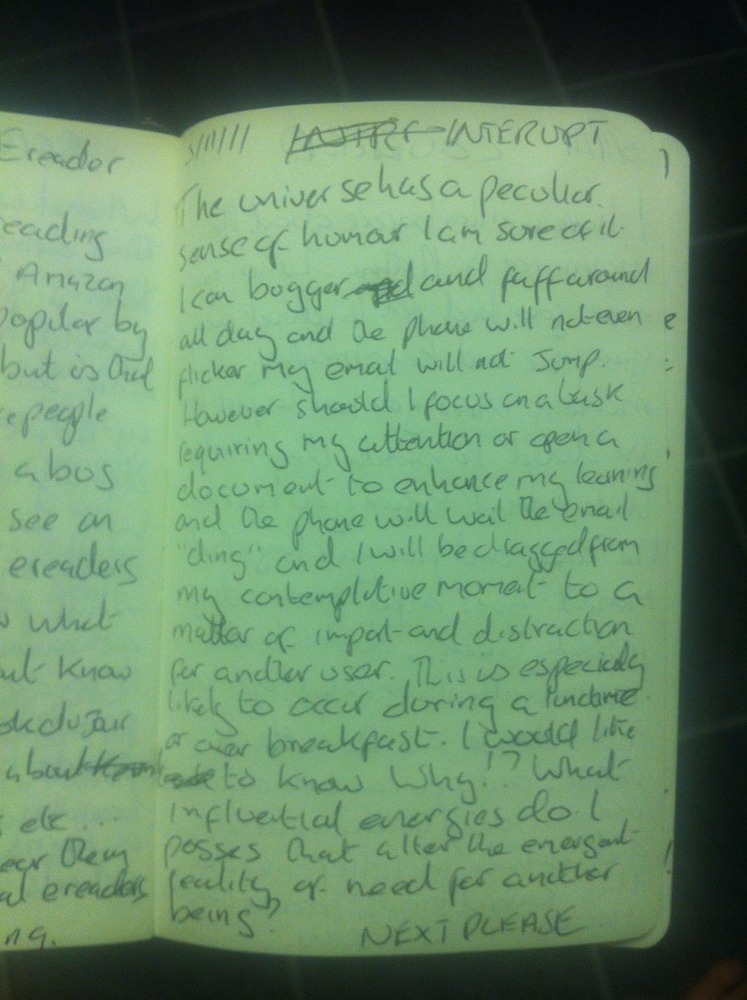 Ereader
eading
Amazon
popular by
but is that
people
a bus
see an
ereaders
what
out know
about
etc...
ear them
al ereaders
ng.
5/11/11 INTERUPT
The universe has a peculiar
sense of humour I am sure of it.
I can bugger and faff around
all day and the phone will not even
flicker my email will not Jump.
However should I focus on a task
requiring my attention or open a
document to enhance my learning
and the phone will wail the email
"ding" and I will be dragged from
my contemplative moment to a
matter of import and distraction
for another user. This is especially
likely to occur during a lunchtime
or over breakfast. I would like
to know Why!? What
Influential energies do I
posses that alter the emergent
reality of need for another
being?
NEXT PLEASE